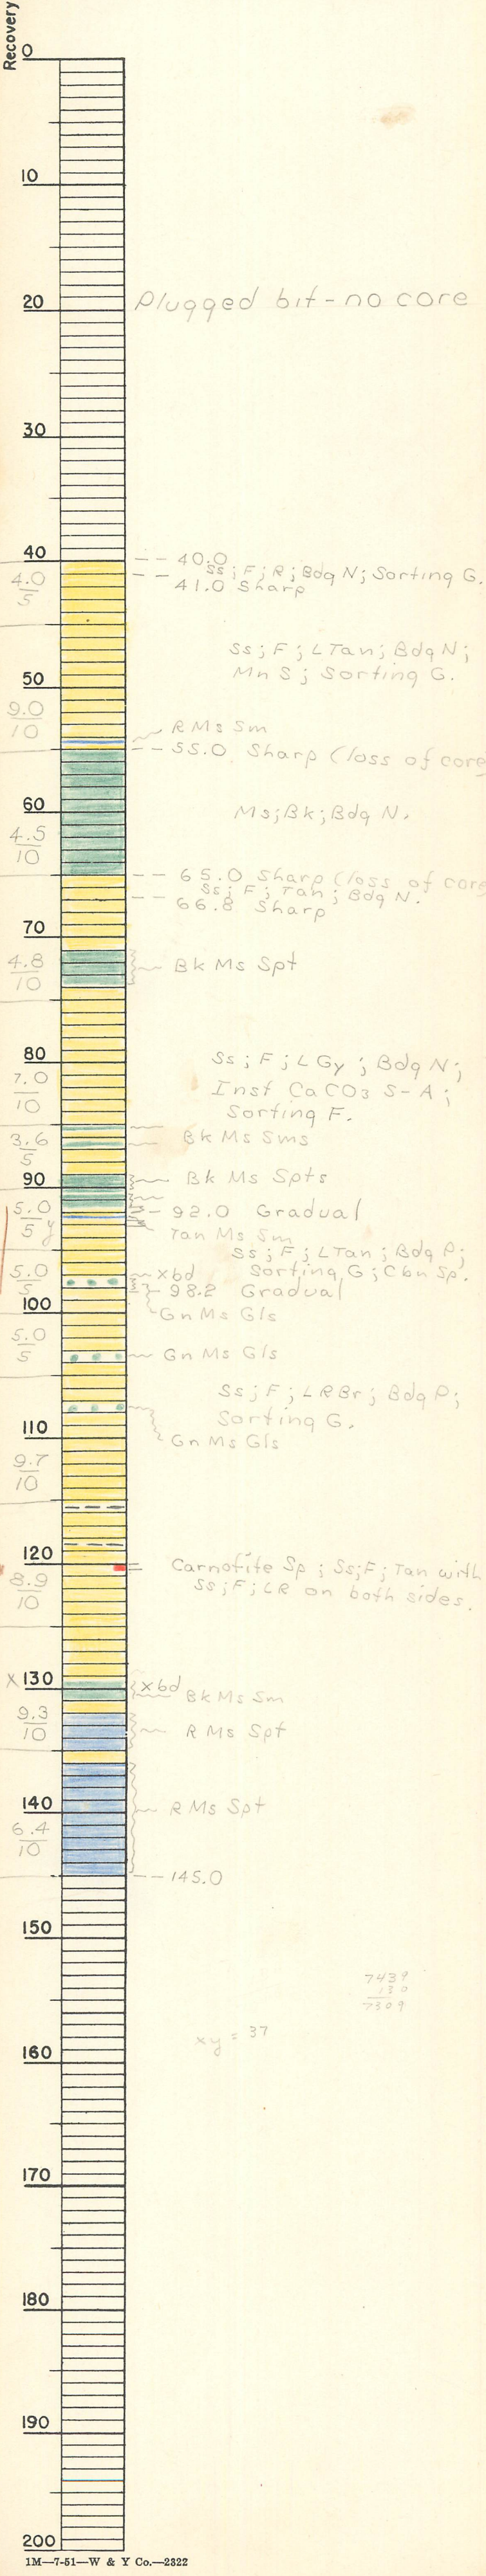 Recovery
0
10
20
Plugged bit - no core
30
40
-- 40.0
4.0
5
Ss; F; R; Bdg N; Sorting G.
41.0 Sharp
Ss; F; LTan; Bdg N;
Mn S; Sorting G.
50
9.0
10
R Ms Sm
-- 55.0 Sharp (loss of core
60
Ms; Bk; Bdg N.
4.5
10
-- 65.0 Sharp (loss of core
Ss; F; Tan; Bdg N.
66.8 Sharp
70
4.8
10
Bk Ms Spt
80
Ss; F; LGy; Bdg N;
7.0
10
Inst CaCO3 S-A;
Sorting F.
3.6
5
Bk Ms Sms
90
Bk Ms Spts
5.0
5 y
92.0 Gradual
Tan Ms Sm
Ss; F; LTan; Bdg P;
5.0
5
xbd
Sorting G; Cbn Sp.
98.2 Gradual
100
Gn Ms Gls
5.0
5
Gn Ms Gls
Ss; F; LRBr; Bdg P;
Sorting G.
110
Gn Ms Gls
9.7
10
120
Carnotite Sp; Ss; F; Tan with
8.9
10
Ss; F; LR on both sides.
X 130
xbd
Bk Ms Sm
9.3
10
R Ms Spt
140
R Ms Spt
6.4
10
-- 145.0
150
7439
130
7309
xy = 37
160
170
180
190
200
1M—7-51—W & Y Co.—2322